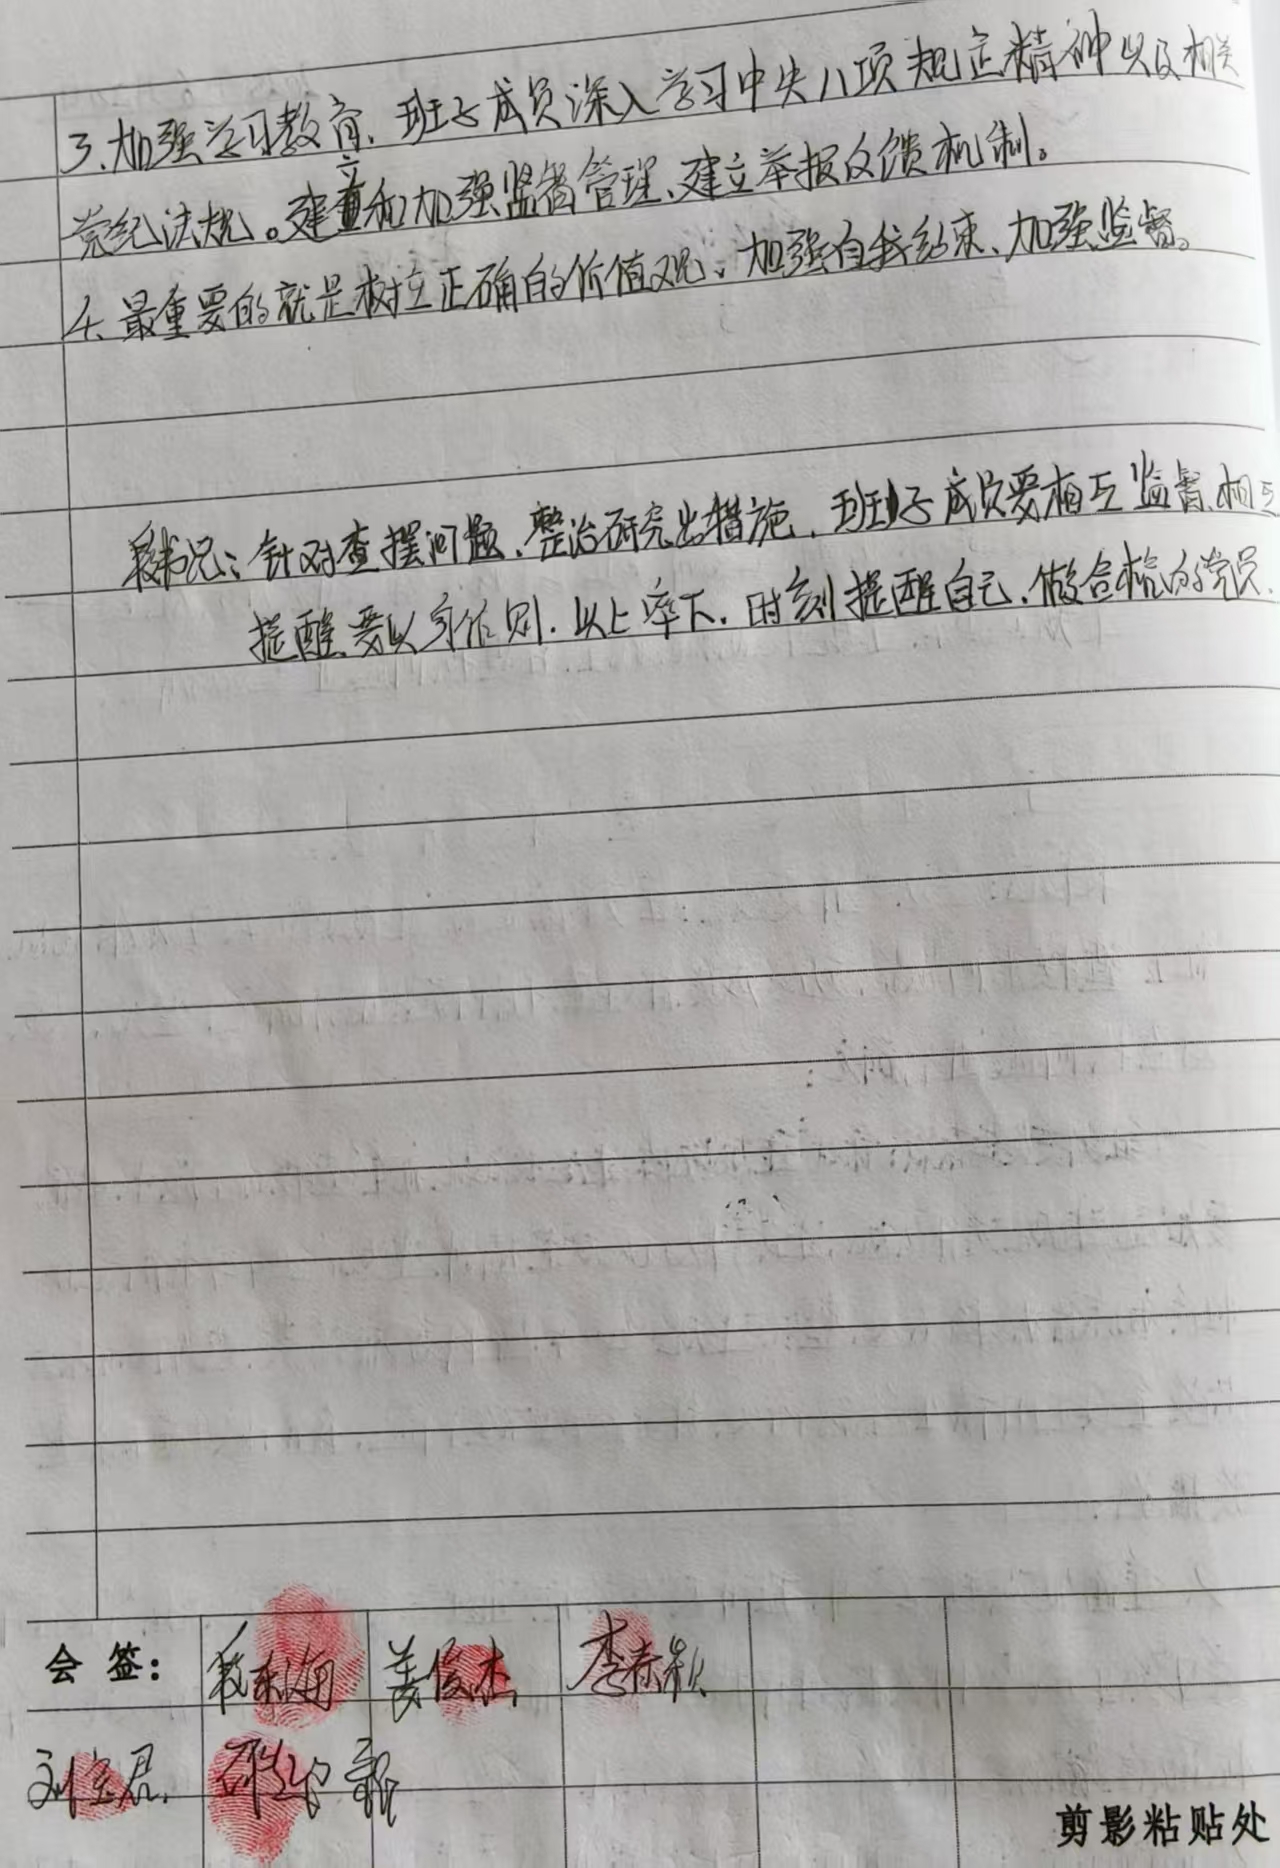 3.加强学习教育、班子成员深入学习中央八项规定精神以及相关
党纪法规。建立和加强监督管理、建立举报反馈机制。
4、最重要的就是树立正确的价值观、加强自我约束、加强监督。
书记：针对查摆问题、整治研究出措施、班子成员要相互监督、相互
提醒、要以身作则、以上率下、时刻提醒自己、做合格的党员、
会 签：
姜俊杰
李春秋
剪影粘贴处